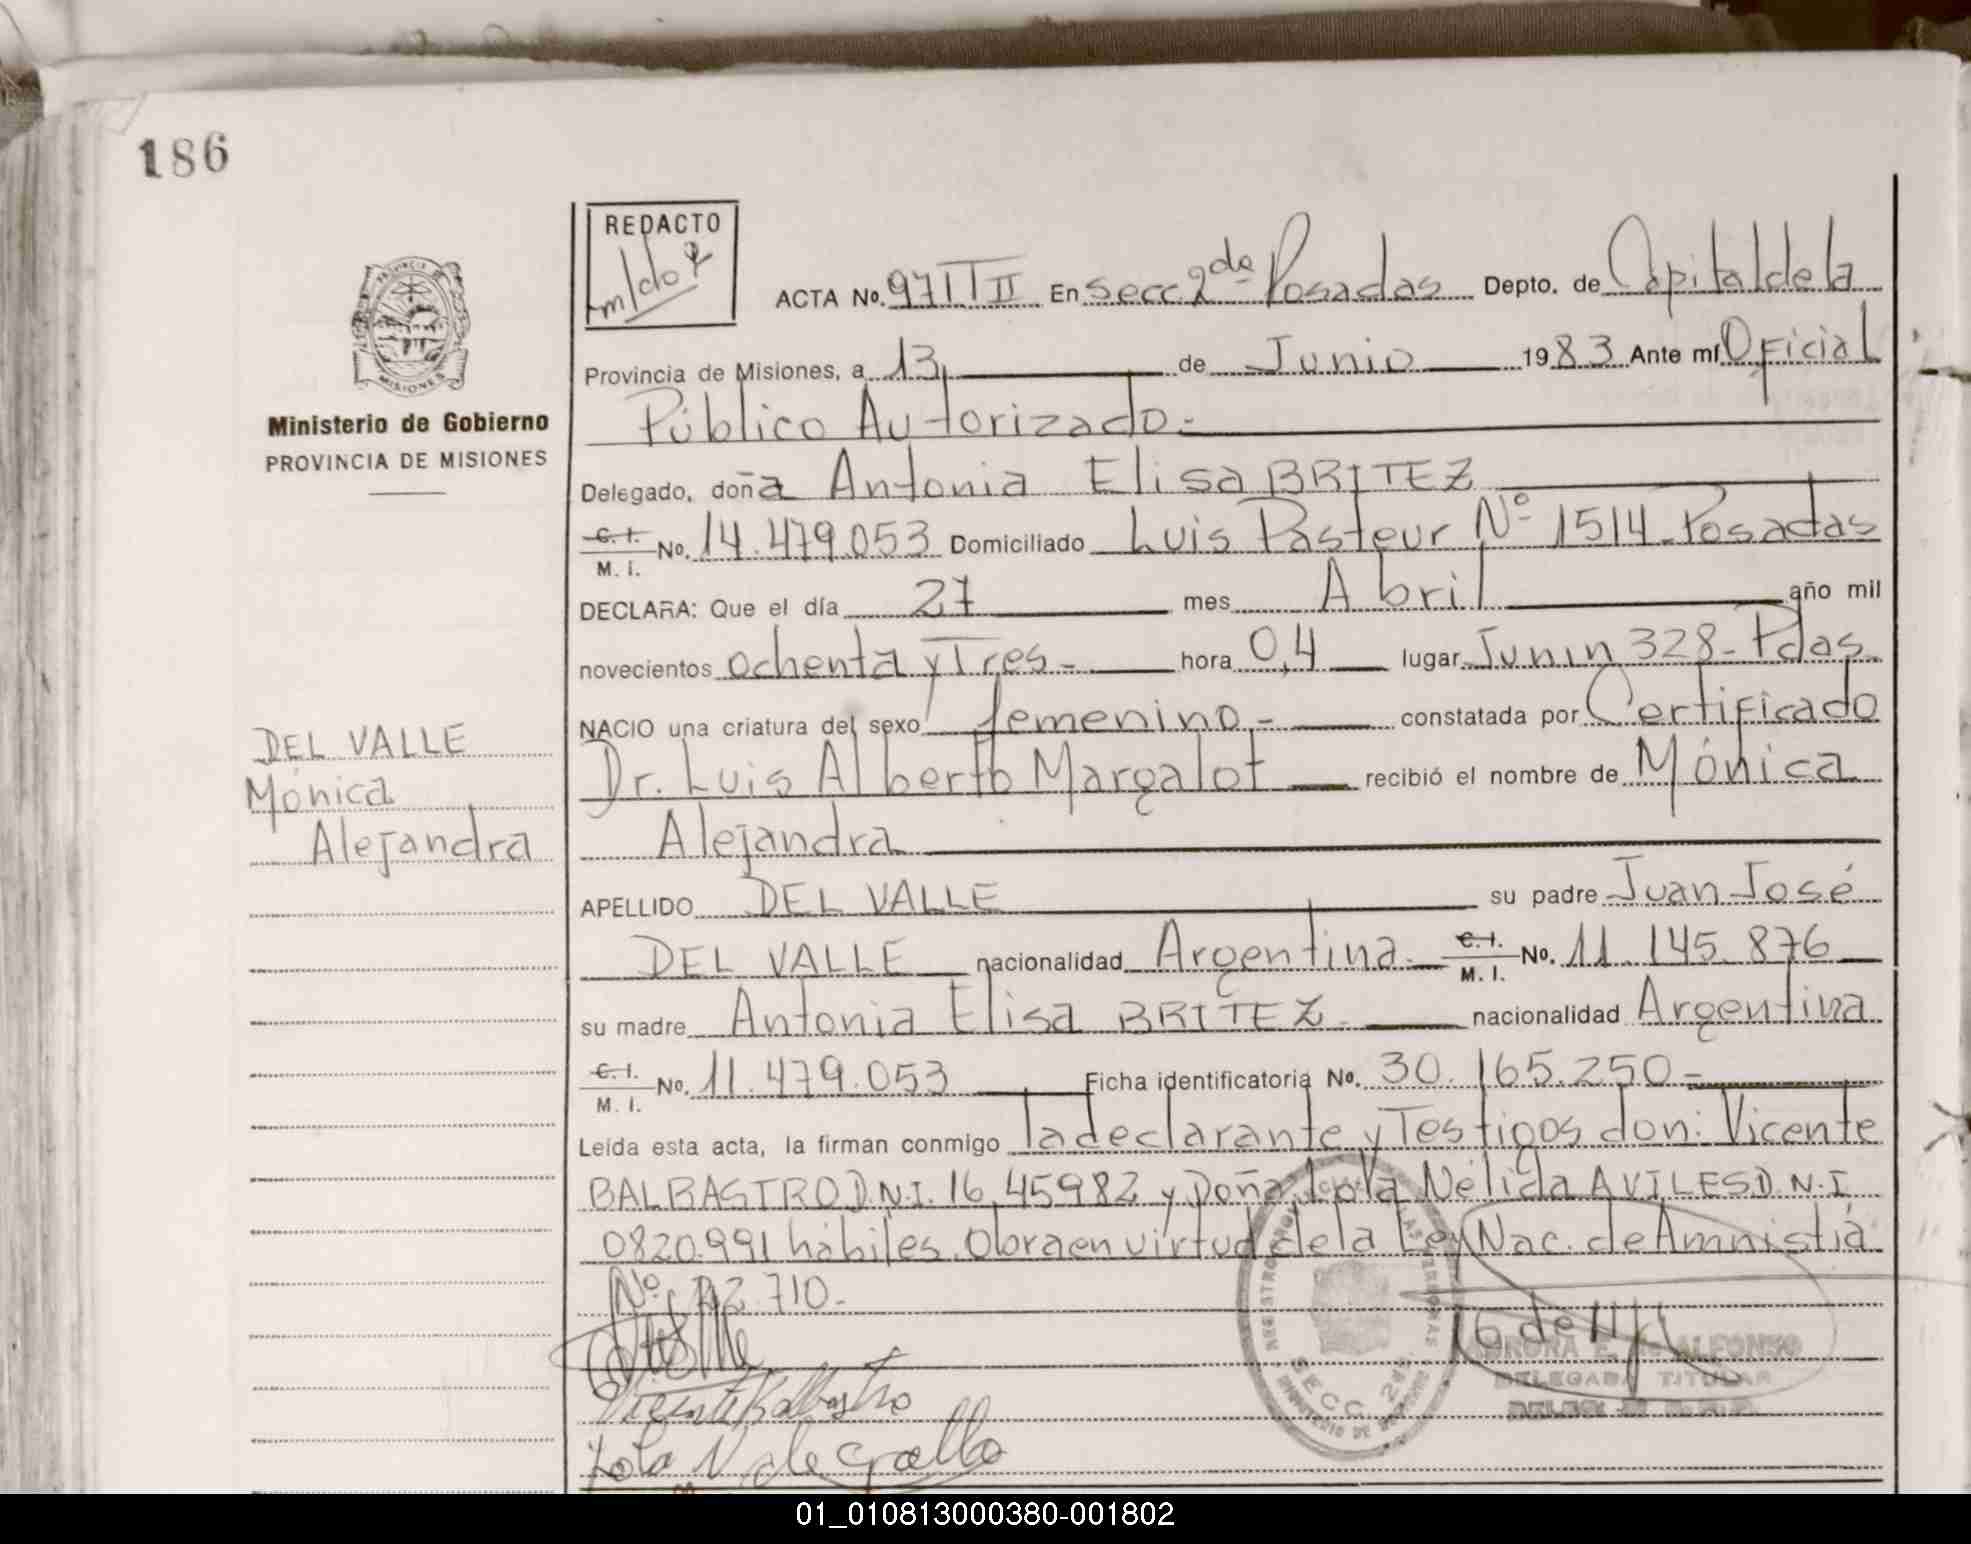 186
REDACTO
PROVINCIA DE
MISIONES
Ministerio de Gobierno
PROVINCIA DE MISIONES
ACTA No. 971 T II En Secc 2da Posadas Depto. de Capital de la
Provincia de Misiones, a 13 de Junio 1983 Ante mí Oficial
Público Autorizado.-
Delegado, doña Antonia Elisa BRITEZ
C. I. / M. I. No. 14.479.053 Domiciliado Luis Pasteur Nº 1514-Posadas
DECLARA: Que el día 27 mes Abril año mil
novecientos ochenta y Tres.- hora 0,4 lugar Junin 328-Pdas.
NACIO una criatura del sexo femenino.- constatada por Certificado
DEL VALLE
Mónica
Alejandra
Dr. Luis Alberto Margalot recibió el nombre de Mónica
Alejandra
APELLIDO DEL VALLE su padre Juan José
DEL VALLE nacionalidad Argentina.- C. I. / M. I. No. 11.145.876
su madre Antonia Elisa BRITEZ.- nacionalidad Argentina
C. I. / M. I. No. 11.479.053 Ficha identificatoria No. 30.165.250-
Leída esta acta, la firman conmigo la declarante y Testigos don: Vicente
BALBASTRO D.N.I. 16.45982 y Doña Lola Nélida AVILES D.N.I
0820.991 hábiles. Obra en virtud de la Ley Nac. de Amnistía
Nº 22.710.-
Vicente Balbastro
Lola N. de Gallo
SECC. 2da
DELEGADA TITULAR
01_010813000380-001802